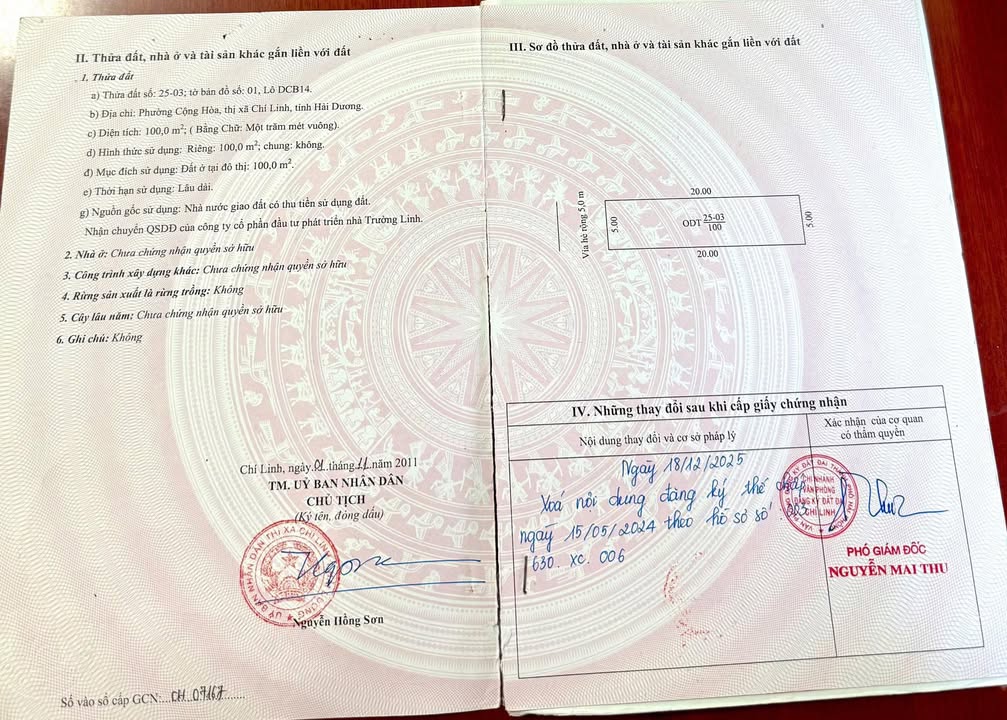 II. Thửa đất, nhà ở và tài sản khác gắn liền với đất
1. Thửa đất
a) Thửa đất số: 25-03; tờ bản đồ số: 01, Lô DCB14.
b) Địa chỉ: Phường Cộng Hòa, thị xã Chí Linh, tỉnh Hải Dương.
c) Diện tích: 100,0 m²; ( Bằng Chữ: Một trăm mét vuông).
d) Hình thức sử dụng: Riêng: 100,0 m²; chung: không.
đ) Mục đích sử dụng: Đất ở tại đô thị: 100,0 m².
e) Thời hạn sử dụng: Lâu dài.
g) Nguồn gốc sử dụng: Nhà nước giao đất có thu tiền sử dụng đất.
Nhận chuyển QSDĐ của công ty cổ phần đầu tư phát triển nhà Trường Linh.
2. Nhà ở: Chưa chứng nhận quyền sở hữu
3. Công trình xây dựng khác: Chưa chứng nhận quyền sở hữu
4. Rừng sản xuất là rừng trồng: Không
5. Cây lâu năm: Chưa chứng nhận quyền sở hữu
6. Ghi chú: Không
Chí Linh, ngày 01 tháng 11 năm 2011
TM. UỶ BAN NHÂN DÂN
CHỦ TỊCH
(Ký tên, đóng dấu)
UỶ BAN NHÂN DÂN THỊ XÃ CHÍ LINH
Nguyễn Hồng Sơn
Số vào sổ cấp GCN:...CH 07167......
III. Sơ đồ thửa đất, nhà ở và tài sản khác gắn liền với đất
Vỉa hè rộng 5,0 m
20.00
5.00
ODT 25-03
100
5.00
20.00
IV. Những thay đổi sau khi cấp giấy chứng nhận
Nội dung thay đổi và cơ sở pháp lý
Xác nhận của cơ quan
có thẩm quyền
Ngày 18/12/2025
Xoá nội dung đăng ký thế chấp
ngày 15/05/2024 theo hồ sơ số:
630. XC. 006
CHI NHÁNH
VĂN PHÒNG
ĐĂNG KÝ ĐẤT ĐAI
CHÍ LINH
PHÓ GIÁM ĐỐC
NGUYỄN MAI THU